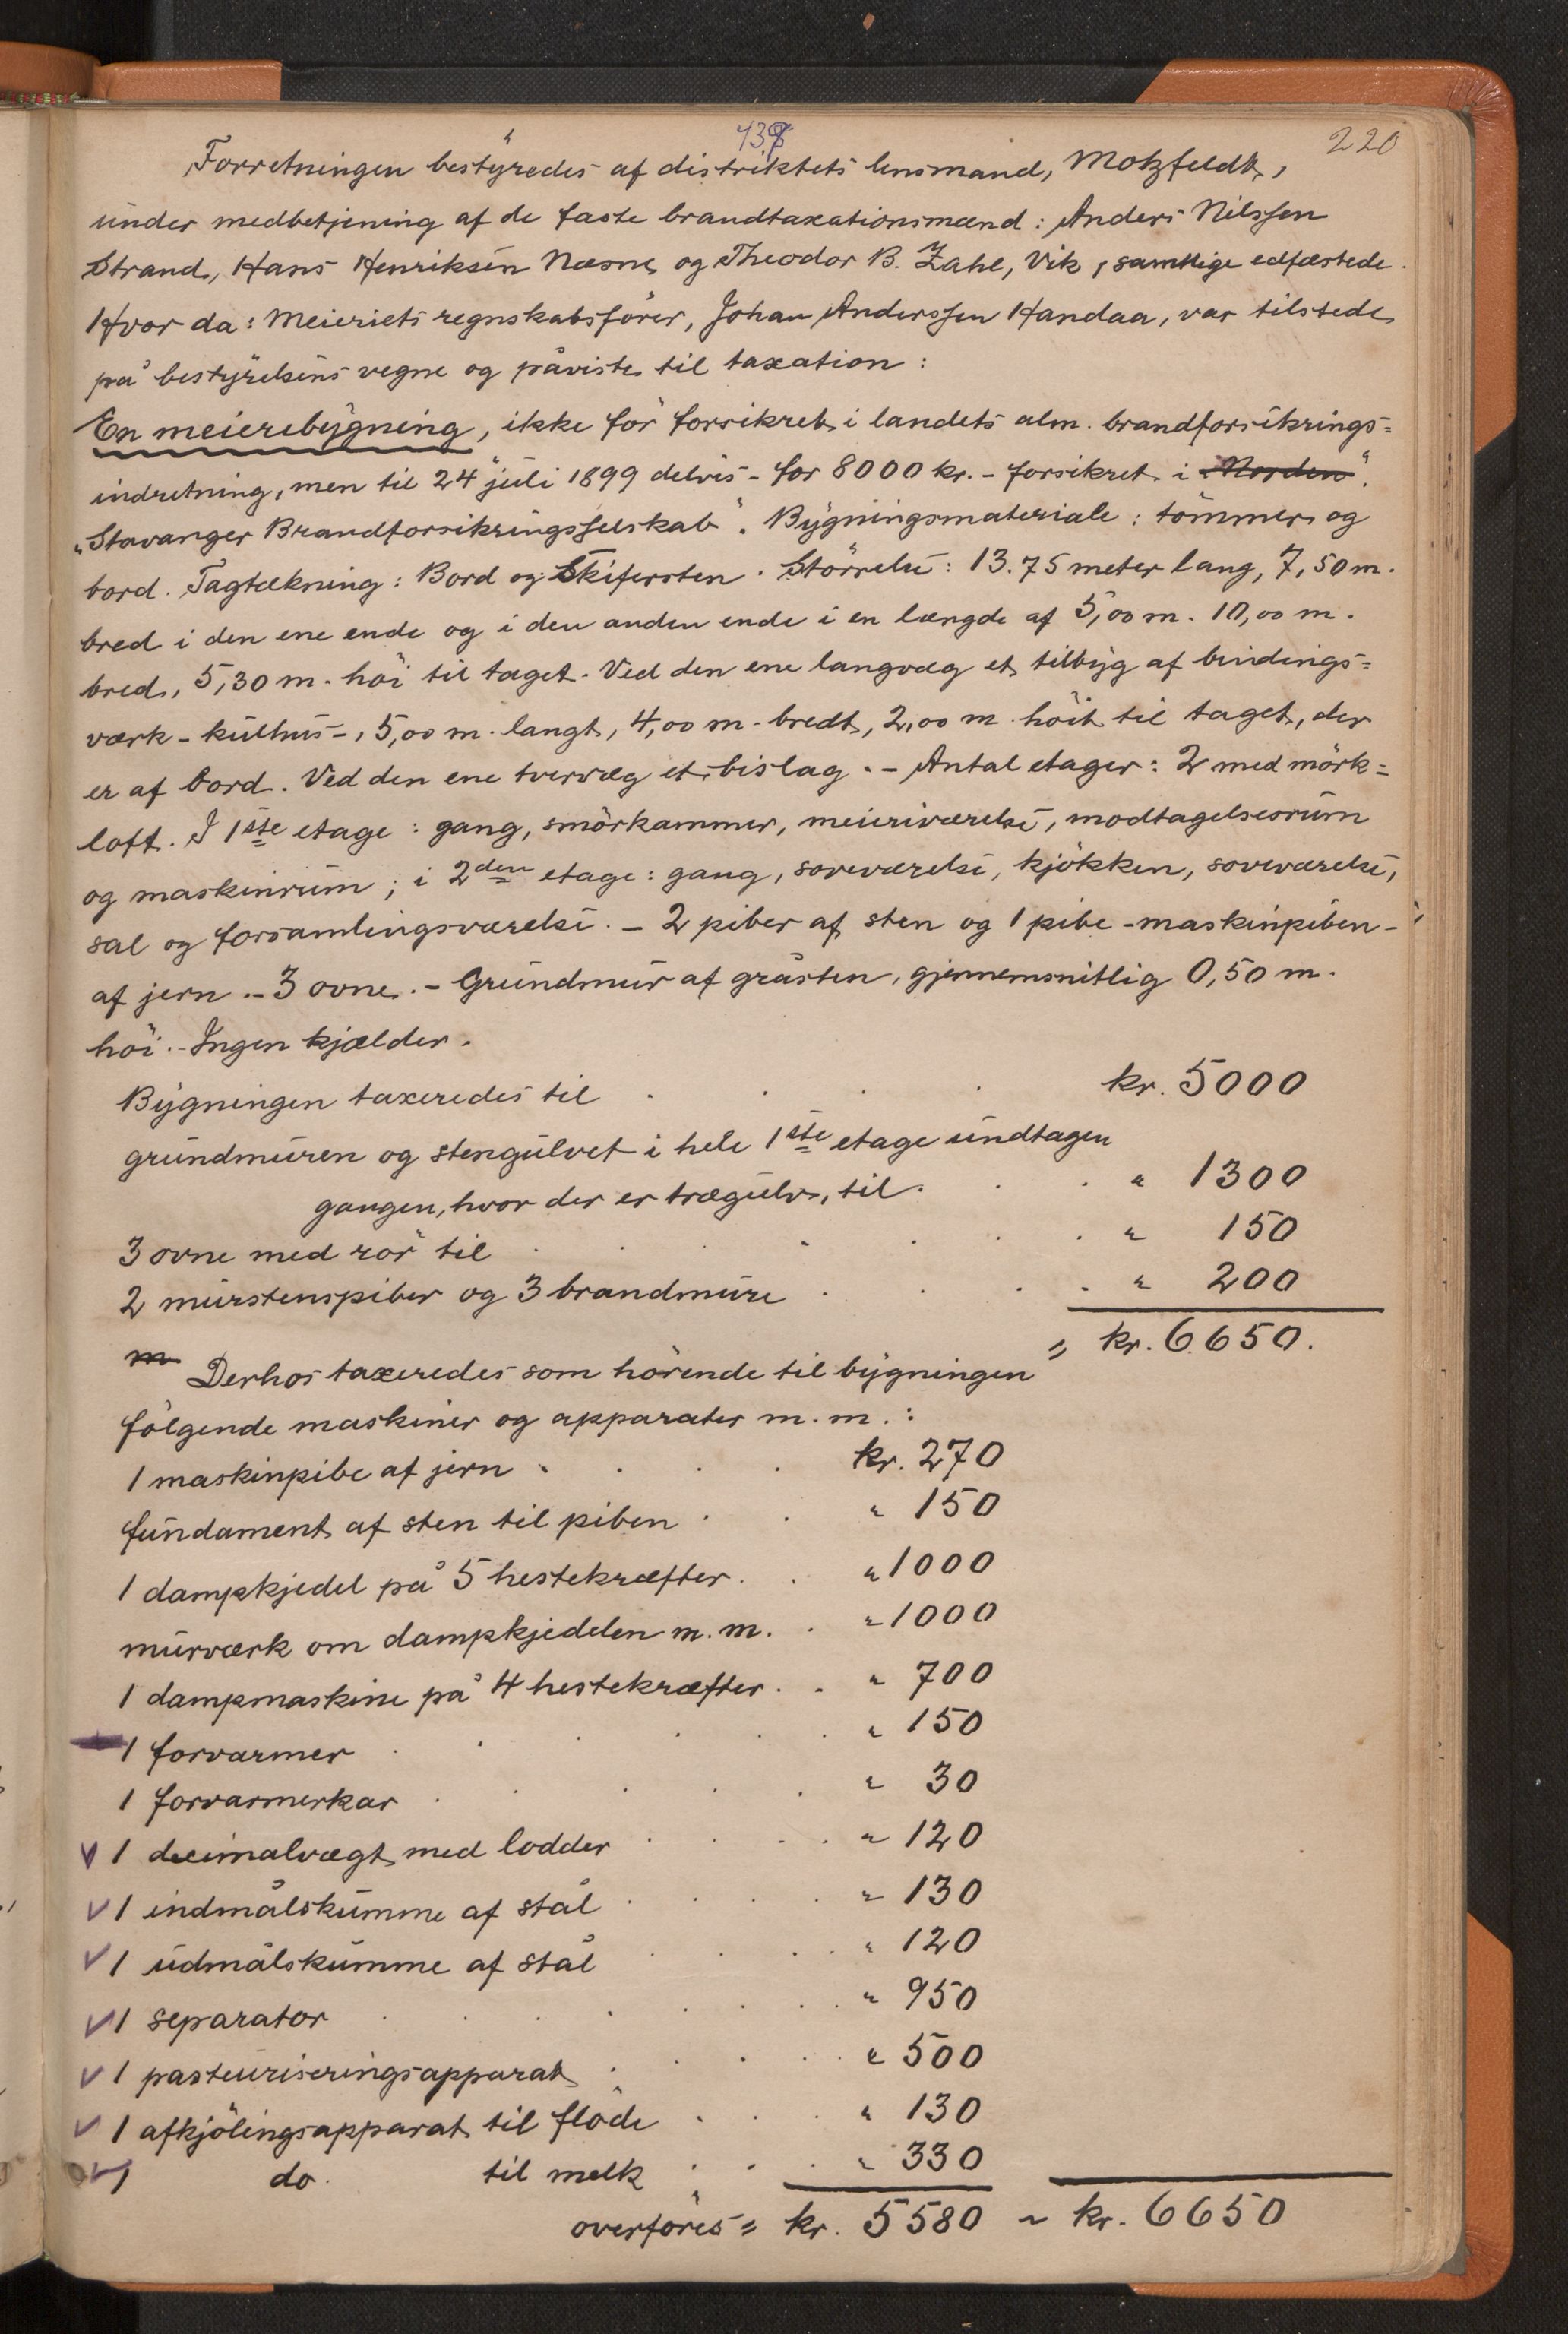 138
220
Forretningen bestyredes af distriktets lensmand, Motzfeldt,
under medbetjening af de faste brandtaxationsmænd: Anders Nilssen
Strand, Hans Henriksen Næsne og Theodor B. Zahl, Vik, samtlige edfæstede.
Hvor da: Meieriets regnskabsförer, Johan Anderssen Handaa, var tilstede
på bestyrelsens vegne og påviste til taxation:
En meieribygning, ikke för forsikret i landets alm. brandforsikrings=
indretning, men til 24 juli 1899 delvis - for 8000 kr. - forsikret i "Norden".
„Stavanger Brandforsikringsselskab". Bygningsmateriale: tömmer og
bord. Tagtækning: Bord og Skifersten. Störrelse: 13.75 meter lang, 7,50 m.
bred i den ene ende og i den anden ende i en længde af 5,00 m. 10,00 m.
bred, 5,30 m. höi til taget. Ved den ene langvæg et tilbyg af bindings=
værk - kulhus -, 5,00 m. langt, 4,00 m. bredt, 2,00 m höit til taget, der
er af bord. Ved den ene tvervæg et bislag. - Antal etager: 2 med mörk=
loft. I 1ste etage: gang, smörkammer, meieriværelse, modtagelsesrum
og maskinrum; i 2den etage: gang, soveværelse, kjökken, soveværelse,
sal og forsamlingsværelse. - 2 piber af sten og 1 pibe - maskinpiben -
af jern. - 3 ovne. - Grundmur af gråsten, gjennemsnitlig 0,50 m.
höi. - Ingen kjælder.
Bygningen taxeredes til . . . . kr. 5000
grundmuren og stengulvet i hele 1ste etage undtagen
gangen, hvor der er trægulv, til . . . " 1300
3 ovne med rör til . . . . . . . " 150
2 murstenspiber og 3 brandmure . . . . " 200
= kr. 6650.
m Derhos taxeredes som hörende til bygningen
fölgende maskiner og apparater m. m. :
1 maskinpibe af jern . . . . kr. 270
fundament af sten til piben . . " 150
1 dampkjedel på 5 hestekræfter . . " 1000
murværk om dampkjedelen m. m. . " 1000
1 dampmaskine på 4 hestekræfter . . " 700
1 forvarmer . . . . . . " 150
1 forvarmerkar . . . . . " 30
v 1 decimalvægt med lodder . . . " 120
v 1 indmålskumme af stål . . . . " 130
v 1 udmålskumme af stål . . . . " 120
v 1 separator . . . . . . " 950
v 1 pasteuriseringsapparat . . . . " 500
v 1 afkjölingsapparat til flöde . . . " 130
v 1 do. til melk . . . " 330
overföres = kr. 5580 ~ kr. 6650